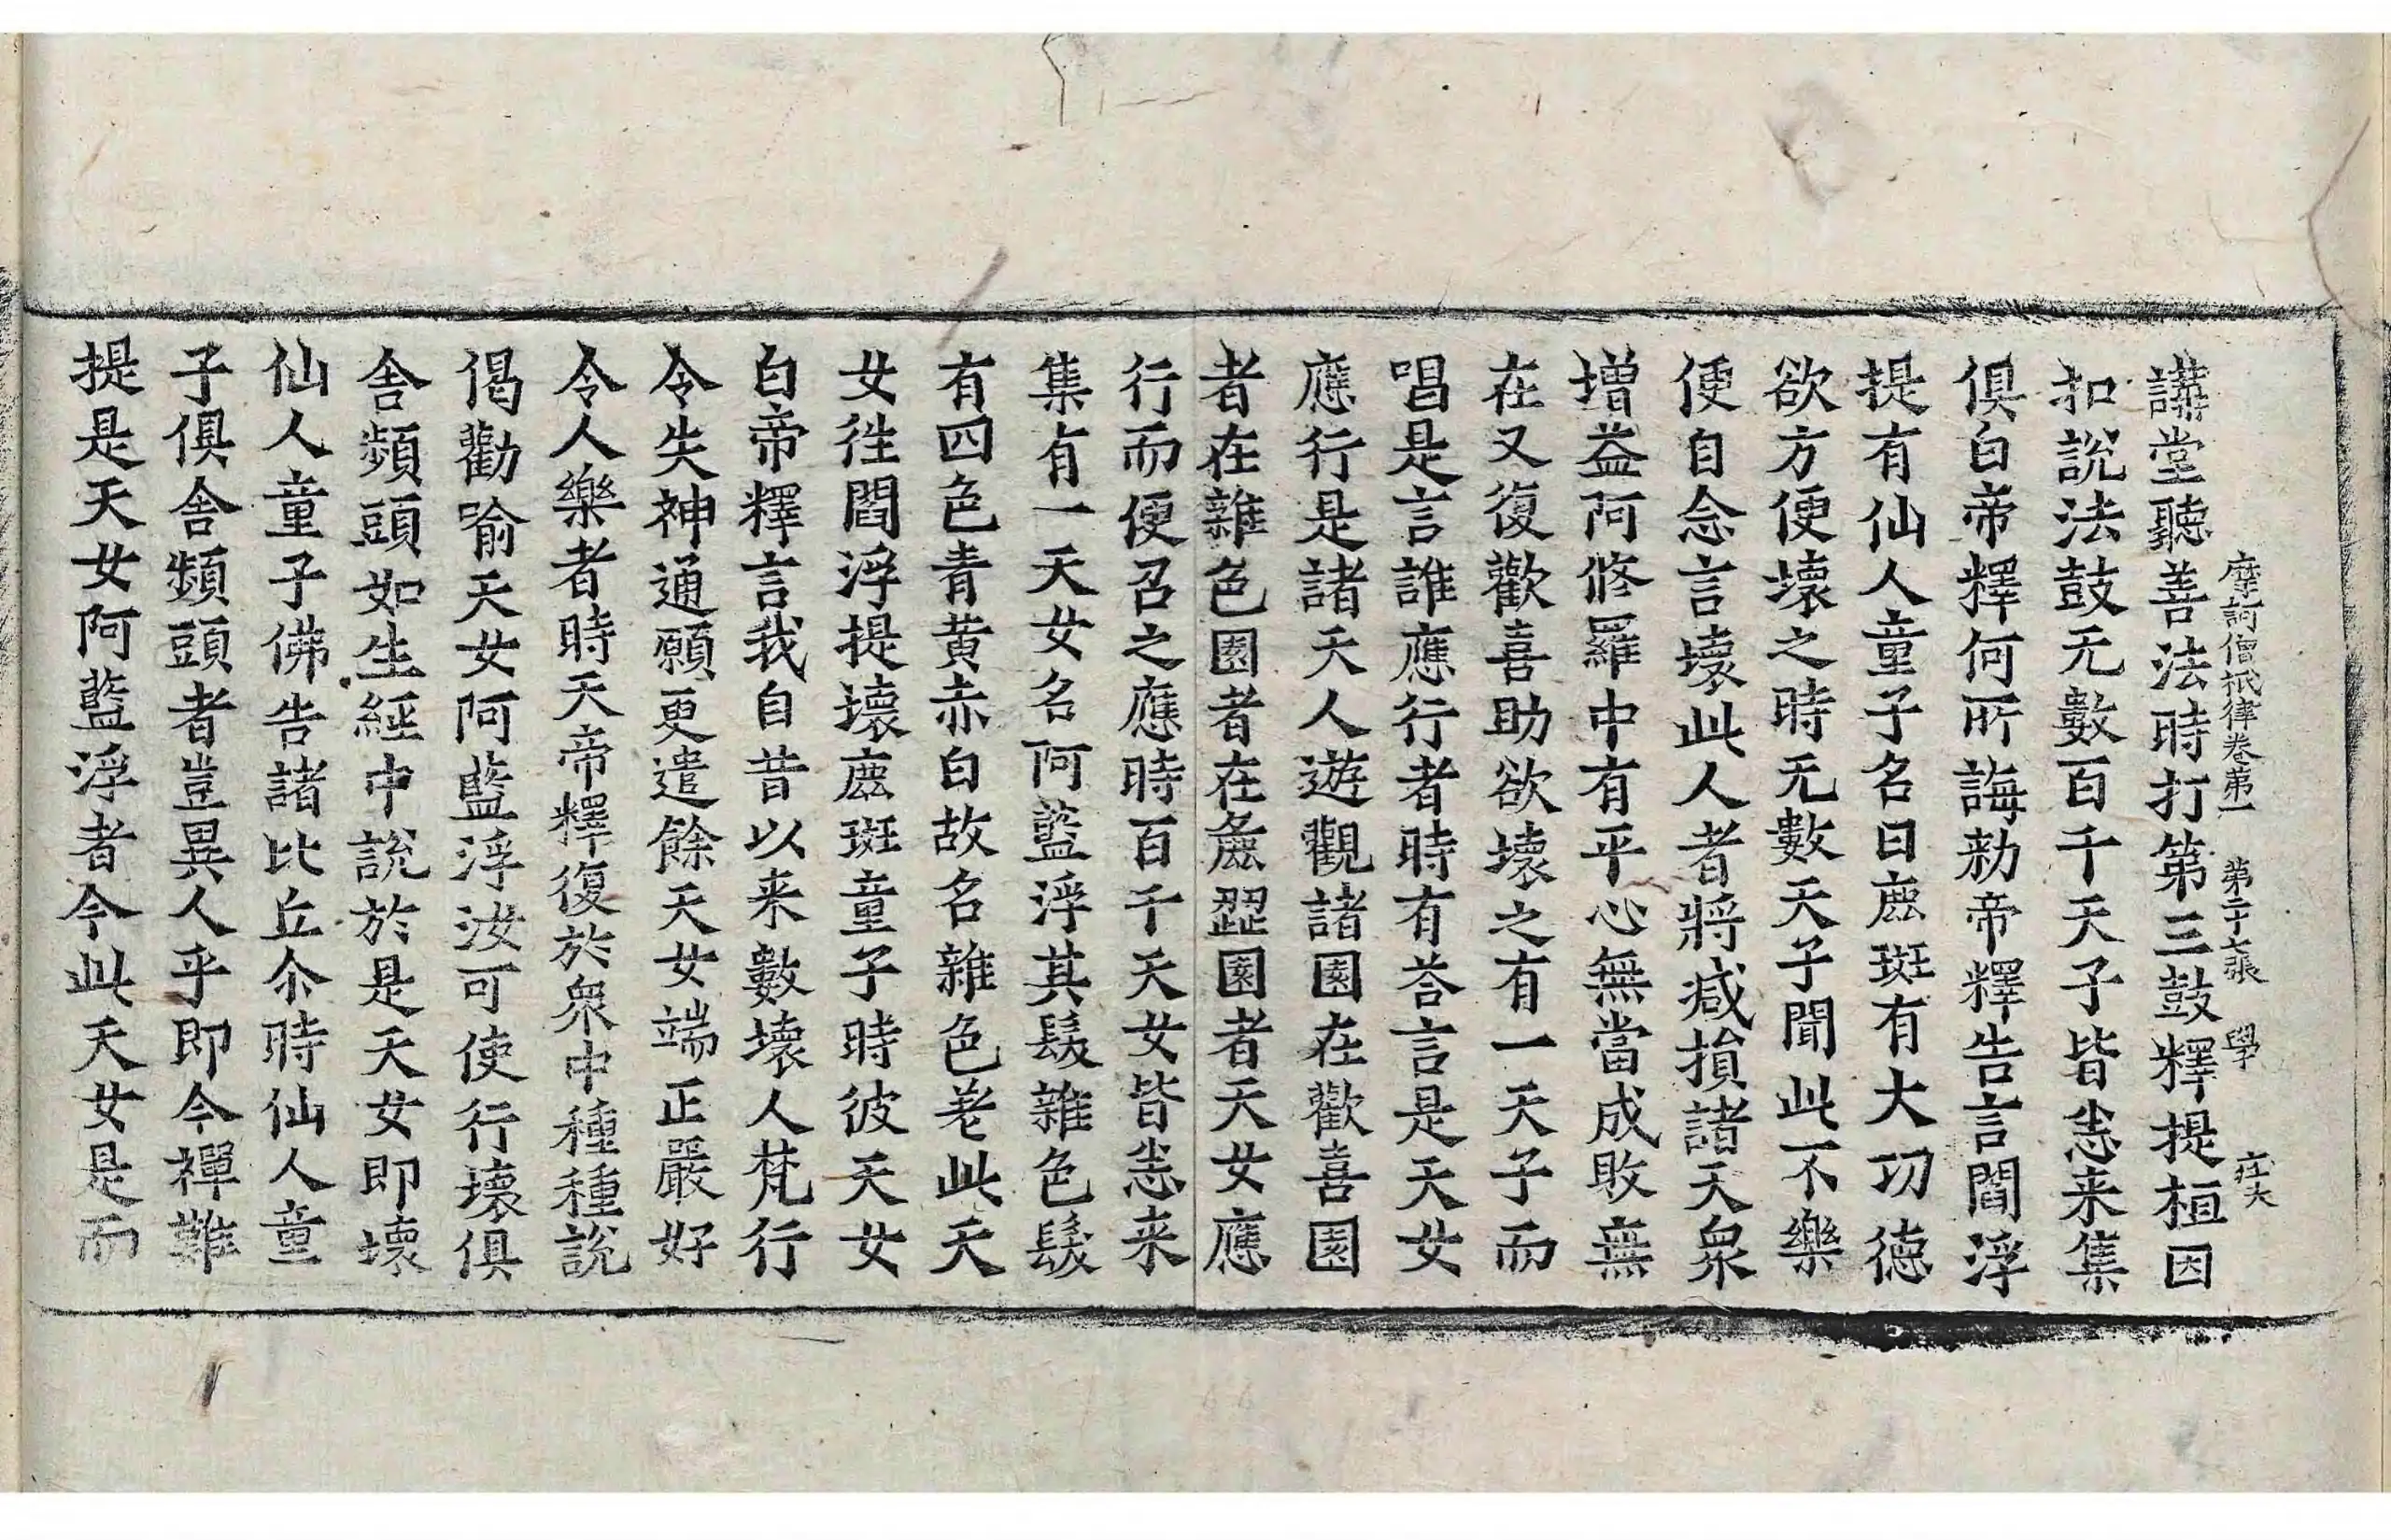 摩訶僧祇律卷第一 第二十七張 學
講堂聽善法時打第三鼓釋提桓因
扣說法鼓无數百千天子皆恙来集
俱白帝釋何所誨勑帝釋告言閻浮
提有仙人童子名曰鹿斑有大功德
欲方便壞之時无數天子聞此不樂
便自念言壞此人者將減損諸天衆
增益阿修羅中有平心無當成敗無
在又復歡喜助欲壞之有一天子而
唱是言誰應行者時有荅言是天女
應行是諸天人遊觀諸園在歡喜園
者在雜色園者在麁澀園者天女應
行而便召之應時百千天女皆恙来
集有一天女名阿藍浮其髮雜色髮
有四色青黄赤白故名雜色差此天
女徃閻浮提壞鹿斑童子時彼天女
白帝釋言我自昔以来數壞人梵行
令失神通願更遣餘天女端正嚴好
令人樂者時天帝釋復於衆中種種說
偈勸喻天女阿藍浮汝可使行壞俱
舍頻頭如生經中說於是天女即壞
仙人童子佛告諸比丘尒時仙人童
子俱舍頻頭者豈異人乎即今禪難
提是天女阿藍浮者今此天女是而